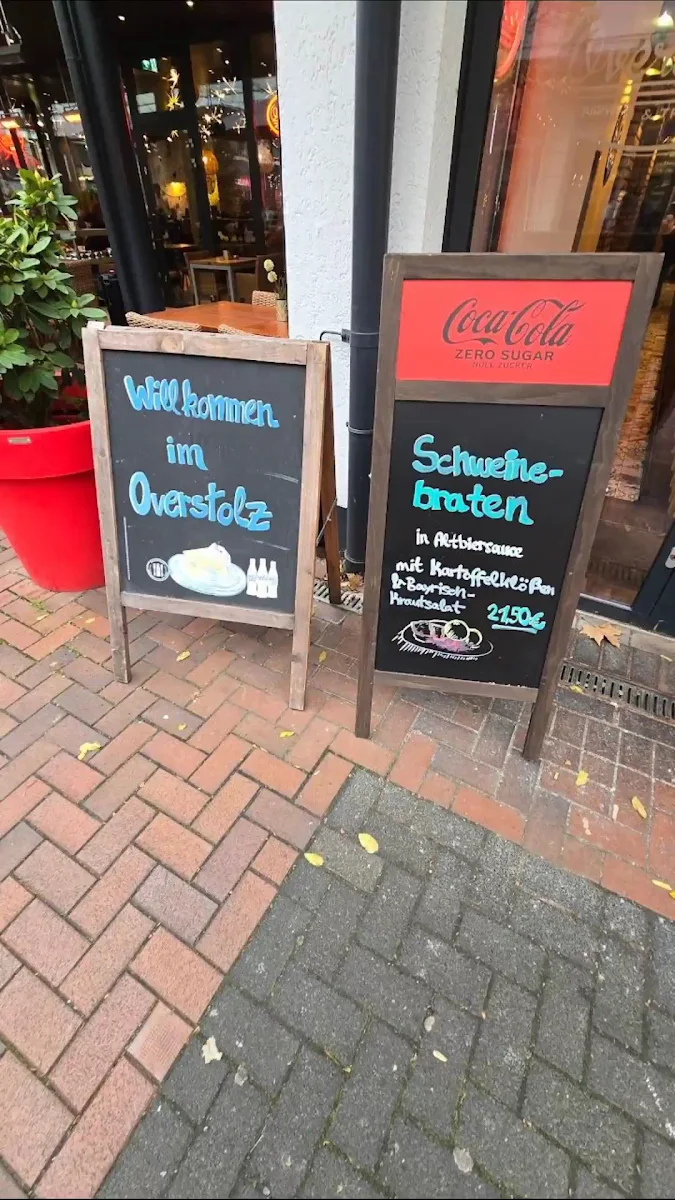 Willkommen
im
Overstolz
Coca-Cola
ZERO SUGAR
NULL ZUCKER
Schweine-
braten
in Altbiersauce
mit Kartoffelklößen
& Bayrisch-
Krautsalat
21,50€